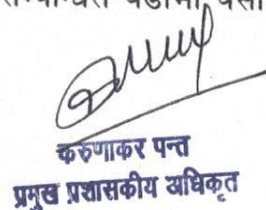 करुणाकर पन्त
प्रमुख प्रशासकीय अधिकृत